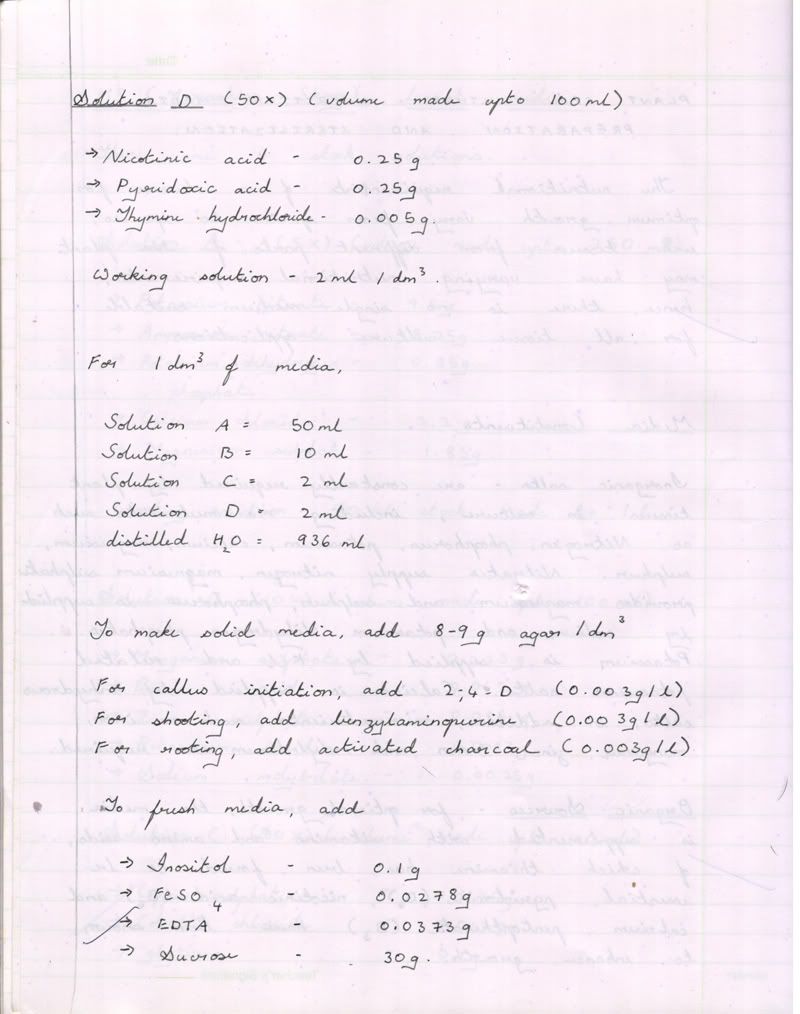 Solution D (50x) (volume made upto 100ml)
→ Nicotinic acid - 0.25g
→ Pyridoxic acid - 0.25g
→ Thymine hydrochloride - 0.005g.
Working solution - 2ml / dm³.
For 1 dm³ of media,
Solution A = 50 ml
Solution B = 10 ml
Solution C = 2 ml
Solution D = 2 ml
distilled H₂O = 936 ml
To make solid media, add 8-9 g agar / dm³
For callus initiation, add 2-4=D (0.003g/l)
For shooting, add benzylaminopurine (0.003g/l)
For rooting, add activated charcoal (0.003g/l)
To fresh media, add
→ Inositol - 0.1g
→ FeSO₄ - 0.0278g
→ EDTA - 0.0373g
→ Sucrose - 30g.